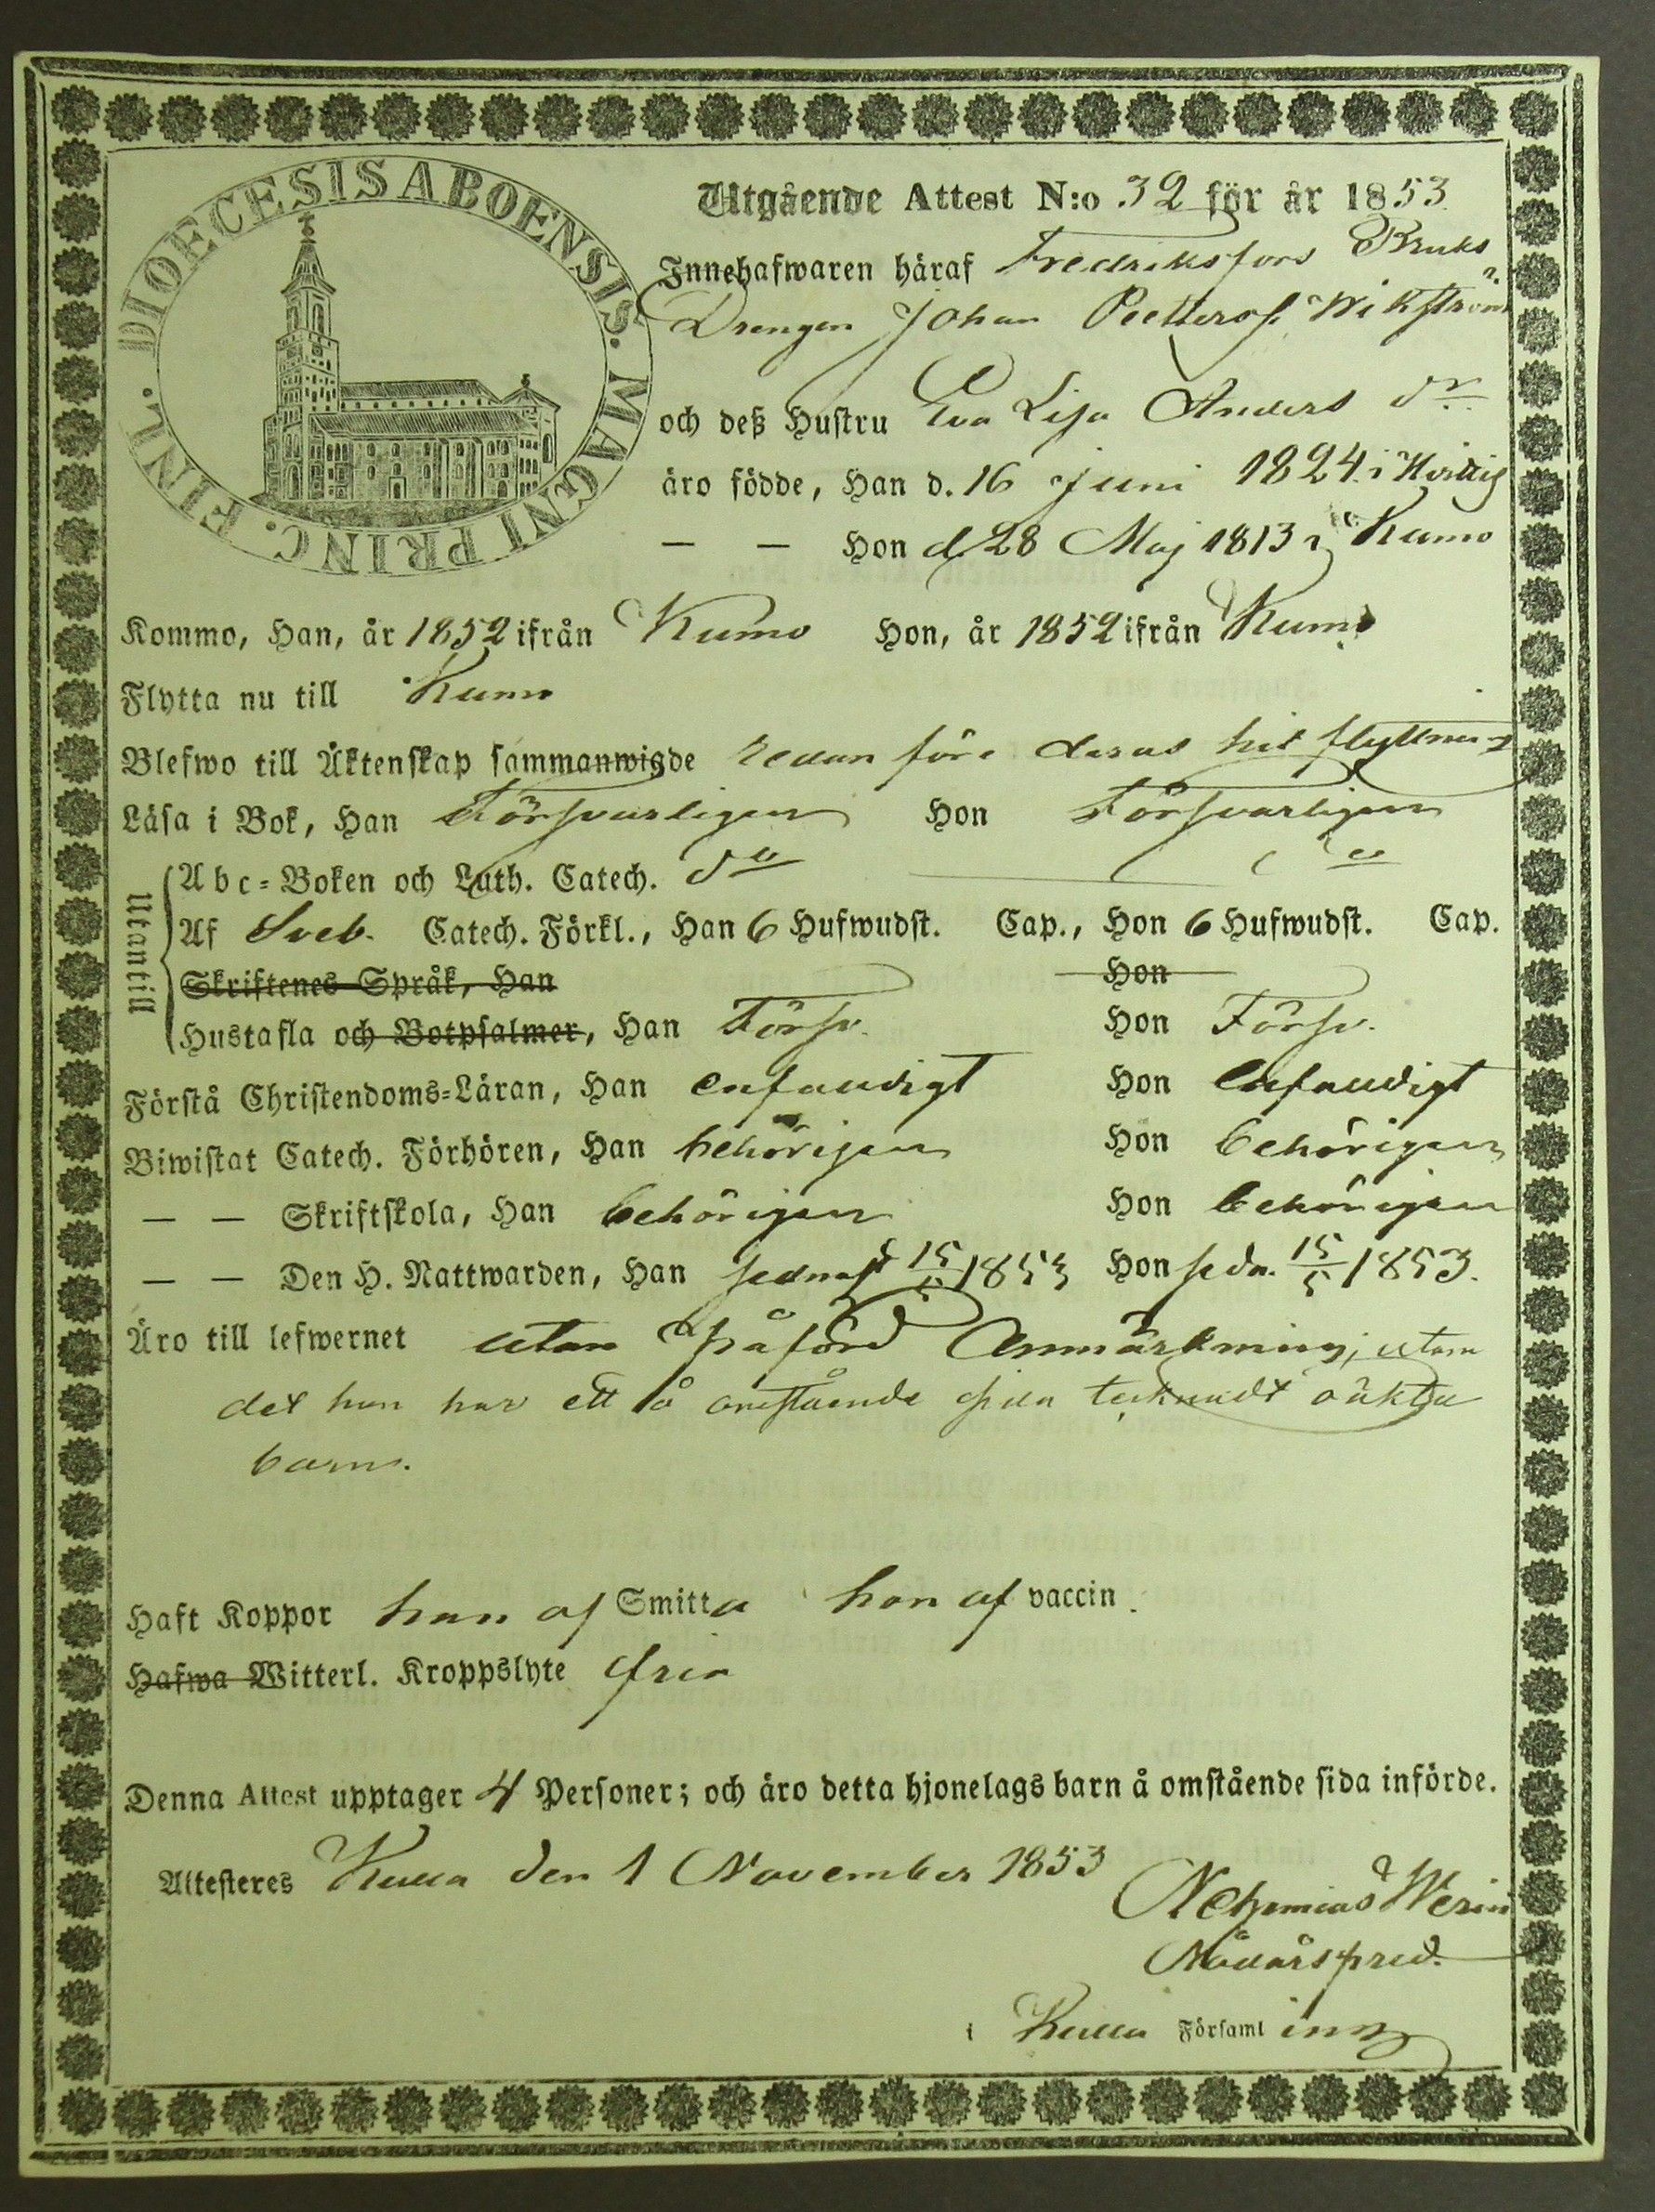 DIOECESIS ABOENSIS. MAGNI PRINC. FINL.
Utgående Attest N:o 32 för år 1853
Innehafwaren häraf Fredriksfors Bruks
Drengen Johan Petterss. Wikström
och deß Hustru Eva Lisa Anders dr
äro födde, Han d. 16 Juni 1824 i Hvittis
— — Hon d. 28 Maj 1813 i Kumo
Kommo, Han, år 1852 ifrån Kumo Hon, år 1852 ifrån Kumo
Flytta nu till Kumo
Blefwo till Äktenskap sammanwigde redan före deras hit flyttning
Läsa i Bok, Han Försvarligen Hon Försvarligen
Utantill
Abc-Boken och Luth. Catech. do
Af Sveb. Catech. Förkl., Han 6 Hufwudst. Cap., Hon 6 Hufwudst. Cap.
Skriftenes Språk, Han Hon
Hustafla och Botpsalmer, Han Försv. Hon Försv.
Förstå Christendoms-Läran, Han enfaldigt Hon enfaldigt
Biwistat Catech. Förhören, Han behörigen Hon behörigen
— — Skriftskola, Han behörigen Hon behörigen
— — Den H. Nattwarden, Han sednast 15/5 1853 Hon sedn. 15/5 1853.
Äro till lefwernet utan påförd Anmärkning, utom
det hon har ett å omstående sida tecknadt oäkta
barn.
Haft Koppor han af Smitta hon af vaccin.
Hafwa Witterl. Kroppslyte fria
Denna Attest upptager 4 Personer; och äro detta hjonelags barn å omstående sida införde.
Attesteres Kulla den 1 November 1853
Nehemias
Nådårspred.
i Kulla Församling